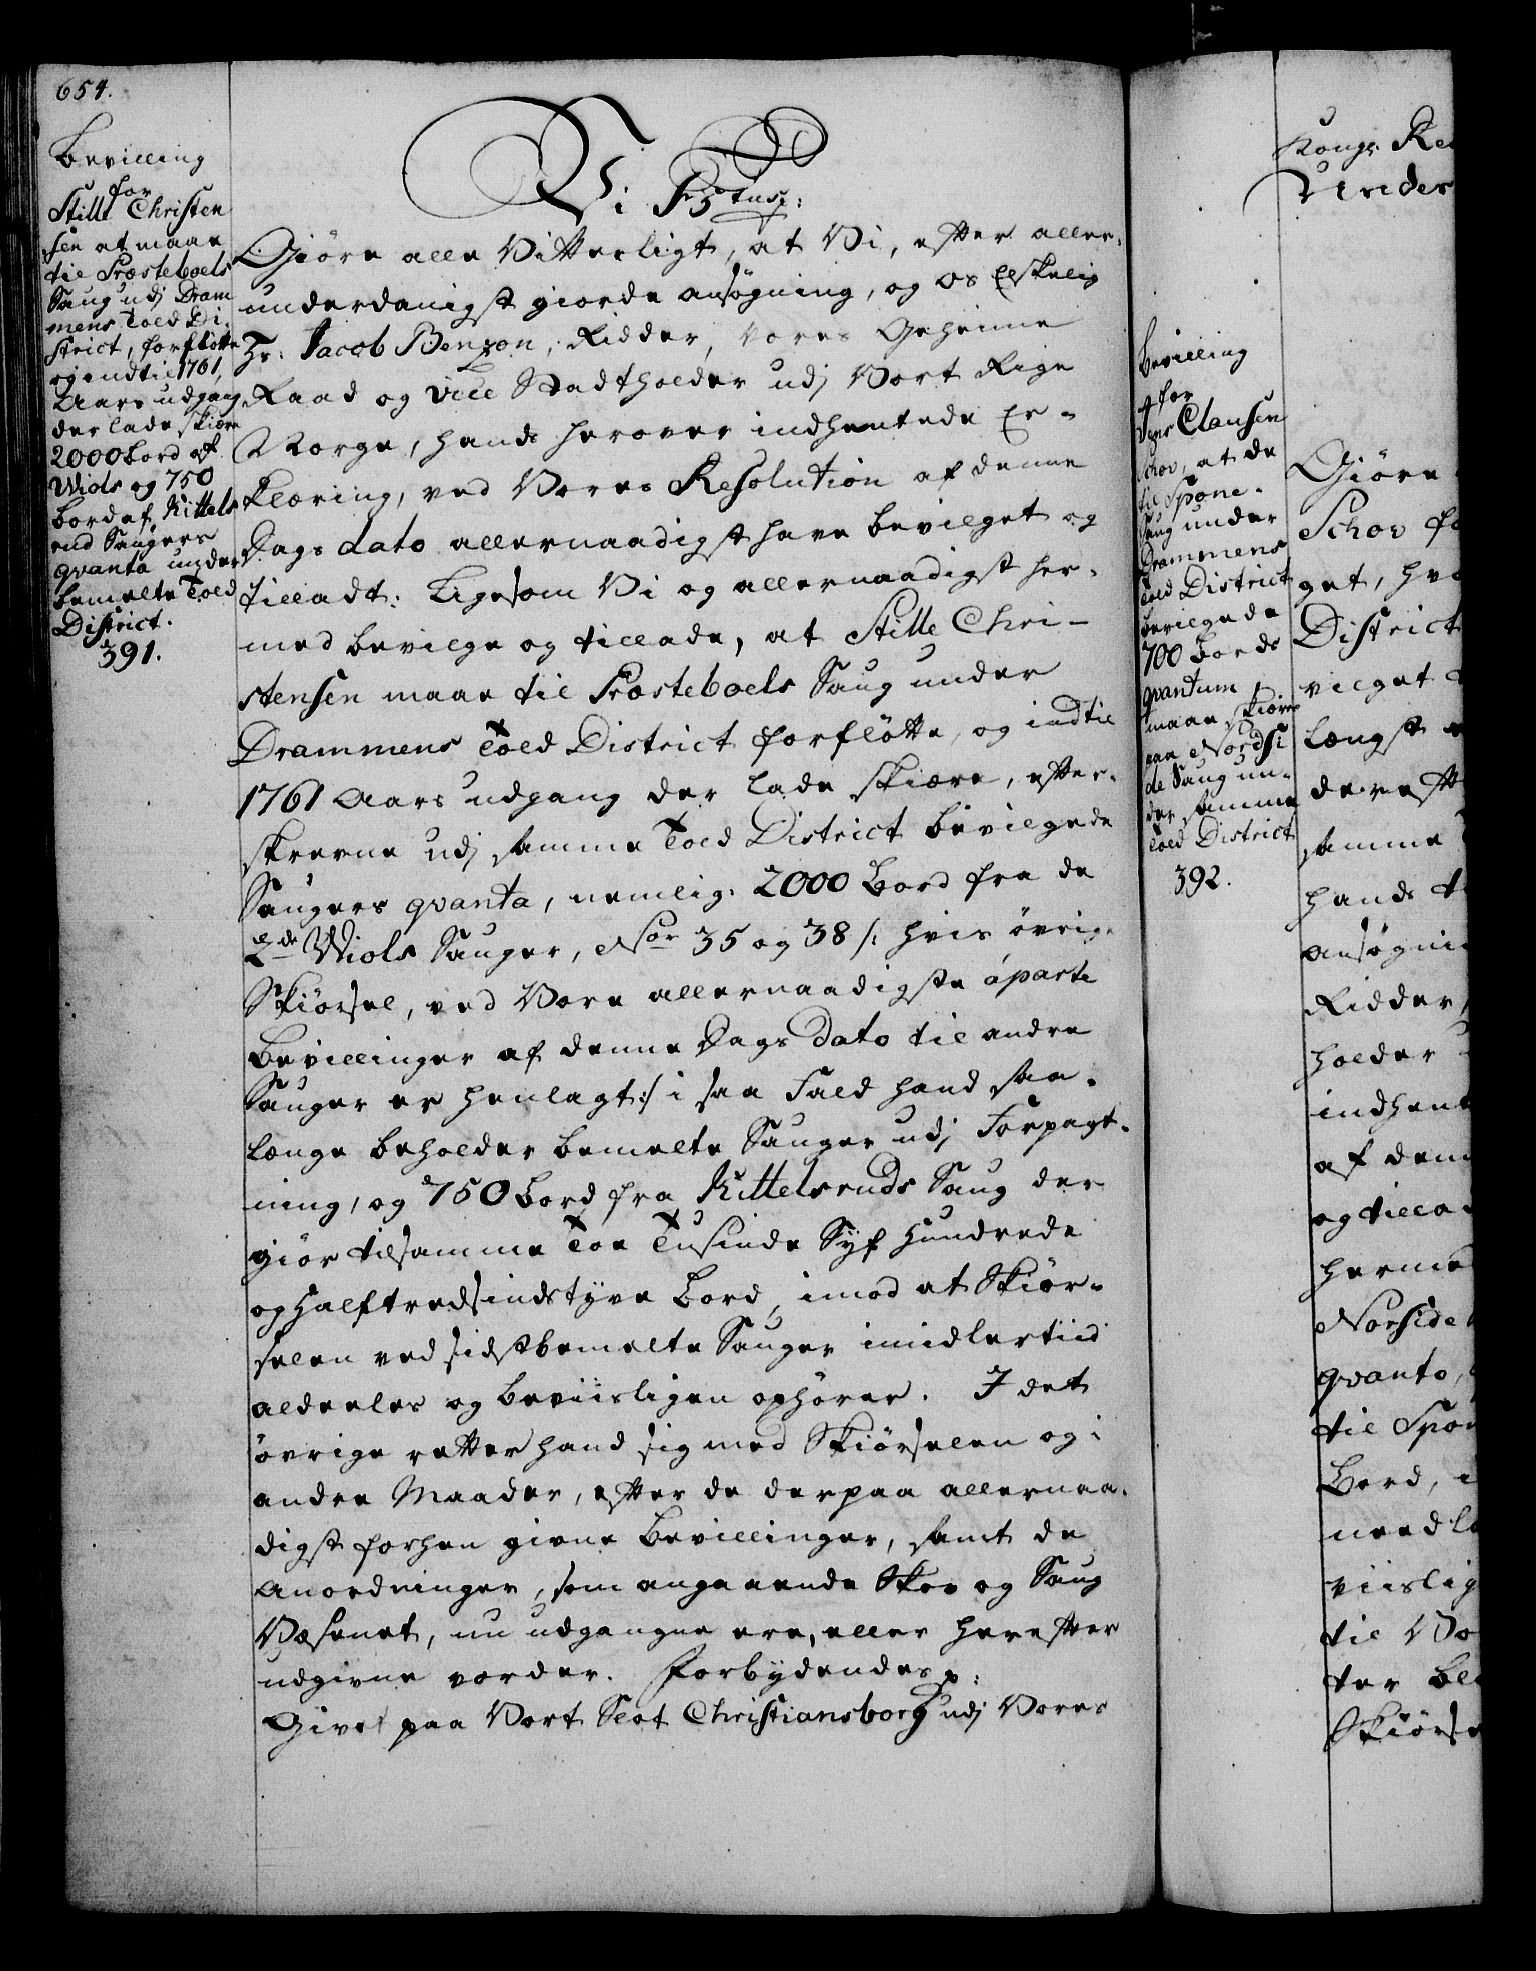 654.
Bevilling
for
Stille Christen
sen at maae
til Præsteboels
Saug udj Dram
mens Told Di-
strict, forflötte
og indtil 1761,
Aars udgang
der lade skiære
2000 Bord af
Wiols og 750
Bord af Kittels
rud Saugers
qvanta under
bemelte Told
District.
391.
Vi Fr: 5tus:
Giöre alle Vitterligt, at Vi, efter aller-
underdanigst giorde ansøgning, og os Elskelig
Hr: Jacob Benzon, Ridder, Vores Geheime
Raad og Vice Stadtholder udj Vort Rige
Norge, hands herover indhentede Er-
klæring, ved Vores Resolution af denne
Dags dato allernaadigst have bevilget og
tilladt: Ligesom Vi og allernaadigst her-
med bevilge og tillade, at Stille Chri-
stensen maae til Præsteboels Saug under
Drammens Told District forflötte, og indtil
1761 Aars udgang der lade skiære, efter-
skrevne udj samme Told District bevilgede
Saugers qvanta, nemlig: 2000 Bord fra de
2de Wiols Sauger, Nor 35 og 38 /: hvis övrige
Skiörsel, ved Vore allernaadigste áparte
Bevillinger af denne Dags Dato til andre
Sauger er henlagt :/ i saa Fald hand saa-
længe beholder bemelte Sauger udj Forpagt-
ning, og 750 Bord fra Kittelsruds Saug der
giör tilsamme Toe Tusinde Syf Hundrede
og Halftredsindstyve Bord, imod at Skiör-
selen ved sidstbemelte Sauger imidlertiid
aldeeles og beviisligen ophörer. I det
övrige retter hand sig med Skiörselen og i
andre Maader, efter de derpaa allernaa-
digst forhen givne Bevillinger, samt de
Anordninger, som angaaende Skov og Saug
Væsenet, nu udgangne ere, eller herefter
udgivne vorder. Forbydendes p:
Givet paa Vort Slot Christiansborg udj Vores
Bevilling
for
Clausen
Schov, at de
til Spone-
Saug under
Drammens
Told District
bevilgede
700 Bords
qvantum
maae skiæres
paa Nordsi
de Saug un-
der samme
Told District
392.
Kongl: Re
Under
Giöre
Schov fo
get, hvo
District
vilget
længst
derefte
samme
hands t
ansøgni
Ridder,
holder
indhent
af den
og tilla
hermed
Norside
qvanto,
til Spon
Bord, i
needla
viislig
til Vo
ter Be
Skiörse